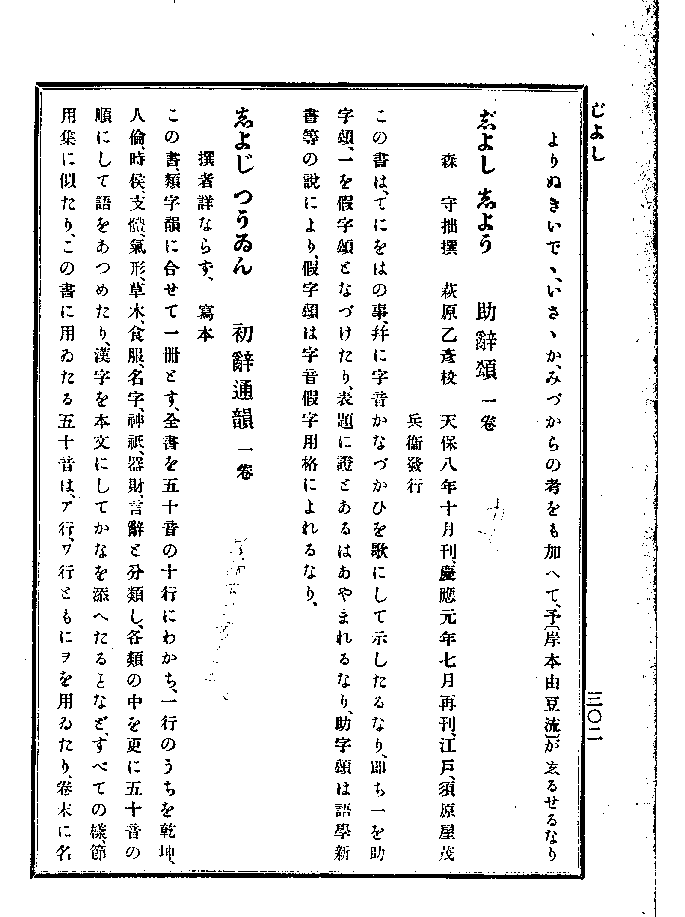 じよし
三〇二
よりぬきいでゝ、いさゝか、みづからの考をも加へて、予(岸本由豆流)が亥るせるなり
志゛よし志よう 助辭頌 一卷
森 守拙撰 萩原乙彦校 天保八年十月刊、慶應元年七月再刊、江戸、須原屋茂
兵衞發行
この書は、てにをはの事、幷に字音かなづかひを歌にして示したるなり、即ち一を助
字頌、一を假字頌となづけたり、表題に證とあるはあやまれるなり、助字頌は語學新
書等の說により、假字頌は字音假字用格によれるなり、
志よじつうゐん 初辭通韻 一卷
撰者詳ならず、寫本
この書、類字韻に合せて一册とす、全書を五十音の十行にわかち、一行のうちを乾坤、
人倫、時侯、支體、氣形、草木、食服、名字、神祇、器財、言辭と分類し、各類の中を更に五十音の
順にして語をあつめたり、漢字を本文にしてかなを添へたるとなど、すべての樣、節
用集に似たり、この書に用ゐたる五十音は、ア行、ワ行ともにヲを用ゐたり、卷末に名